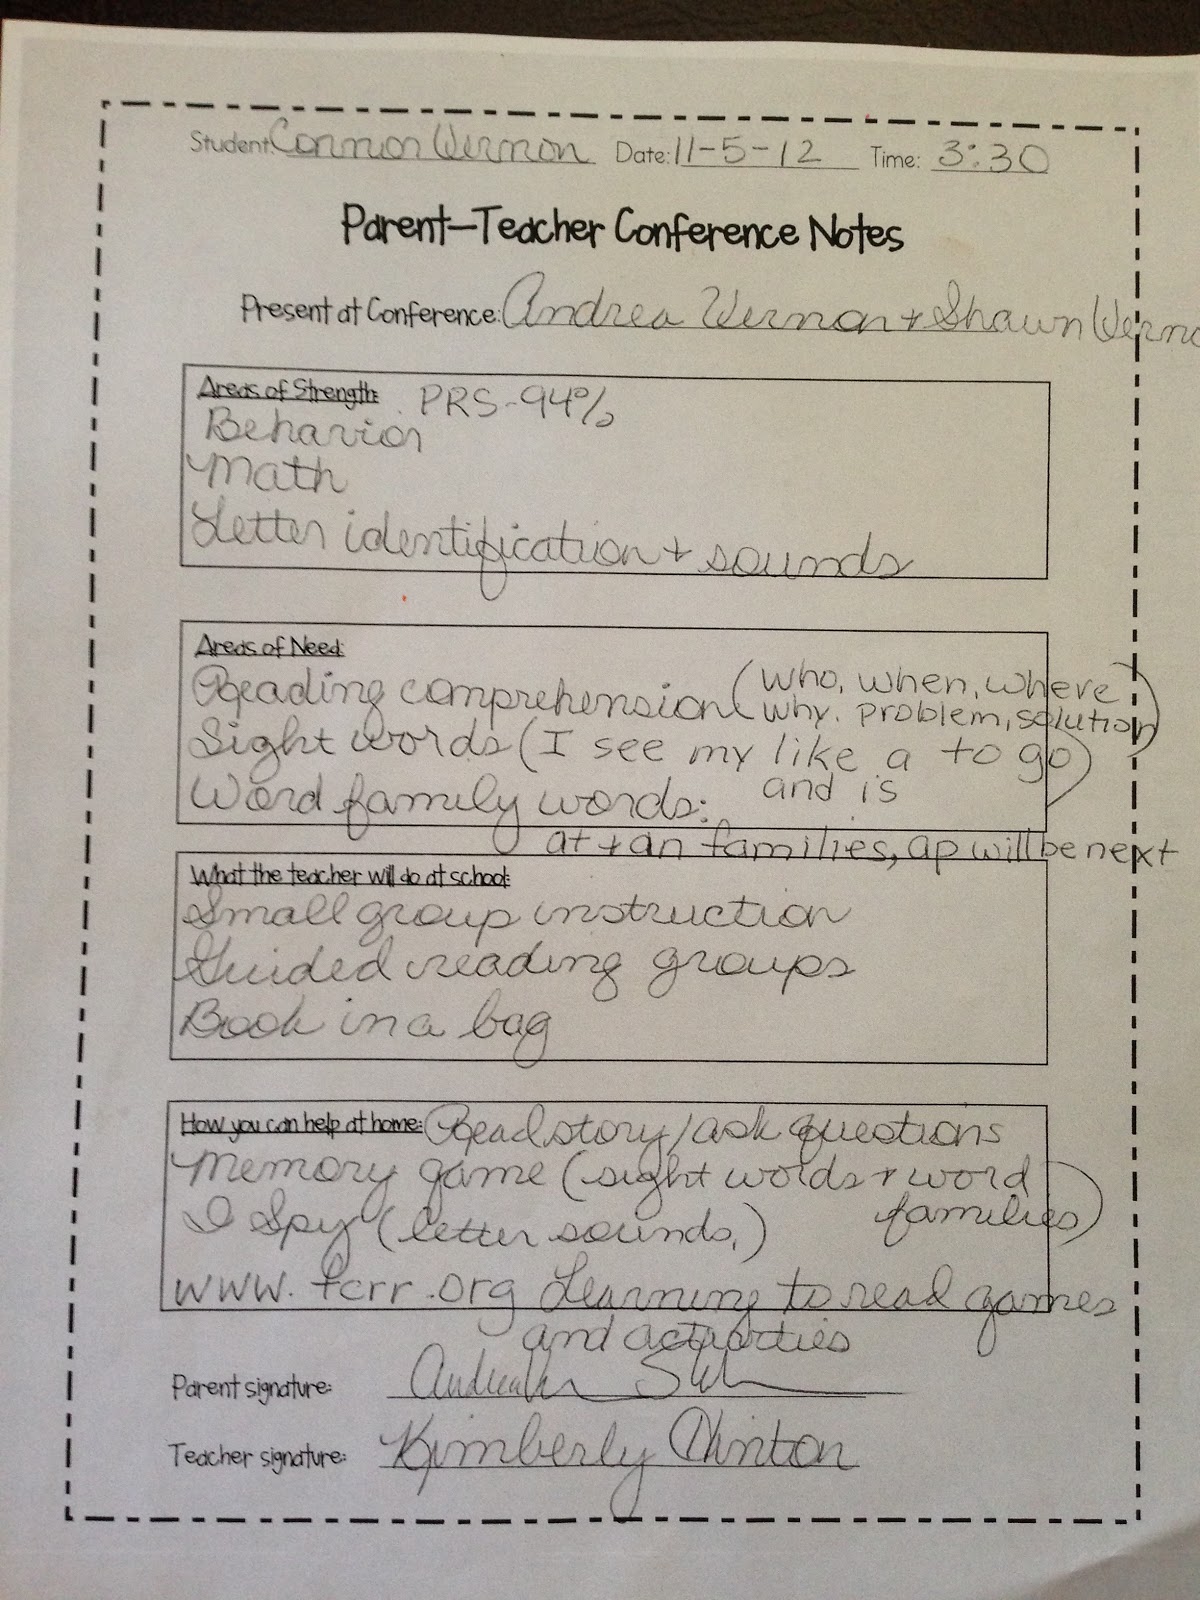 Student: Connor Vernon Date: 11-5-12 Time: 3:30
Parent-Teacher Conference Notes
Present at Conference: Andrea Vernon + Shawn Verno
Areas of Strength: PRS-94%
Behavior
Math
Letter identification + sounds
Areas of Need:
Reading comprehension (who, when, where
why. problem, solution)
Sight words (I see my like a to go
and is)
Word family words:
at + an families, ap will be next
What the teacher will do at school:
Small group instruction
Guided reading groups
Book in a bag
How you can help at home: Read story/ask questions
Memory game (sight words + word
families)
I Spy (letter sounds,)
www.fcrr.org Learning to read games
and activities
Parent signature:
Teacher signature: Kimberly